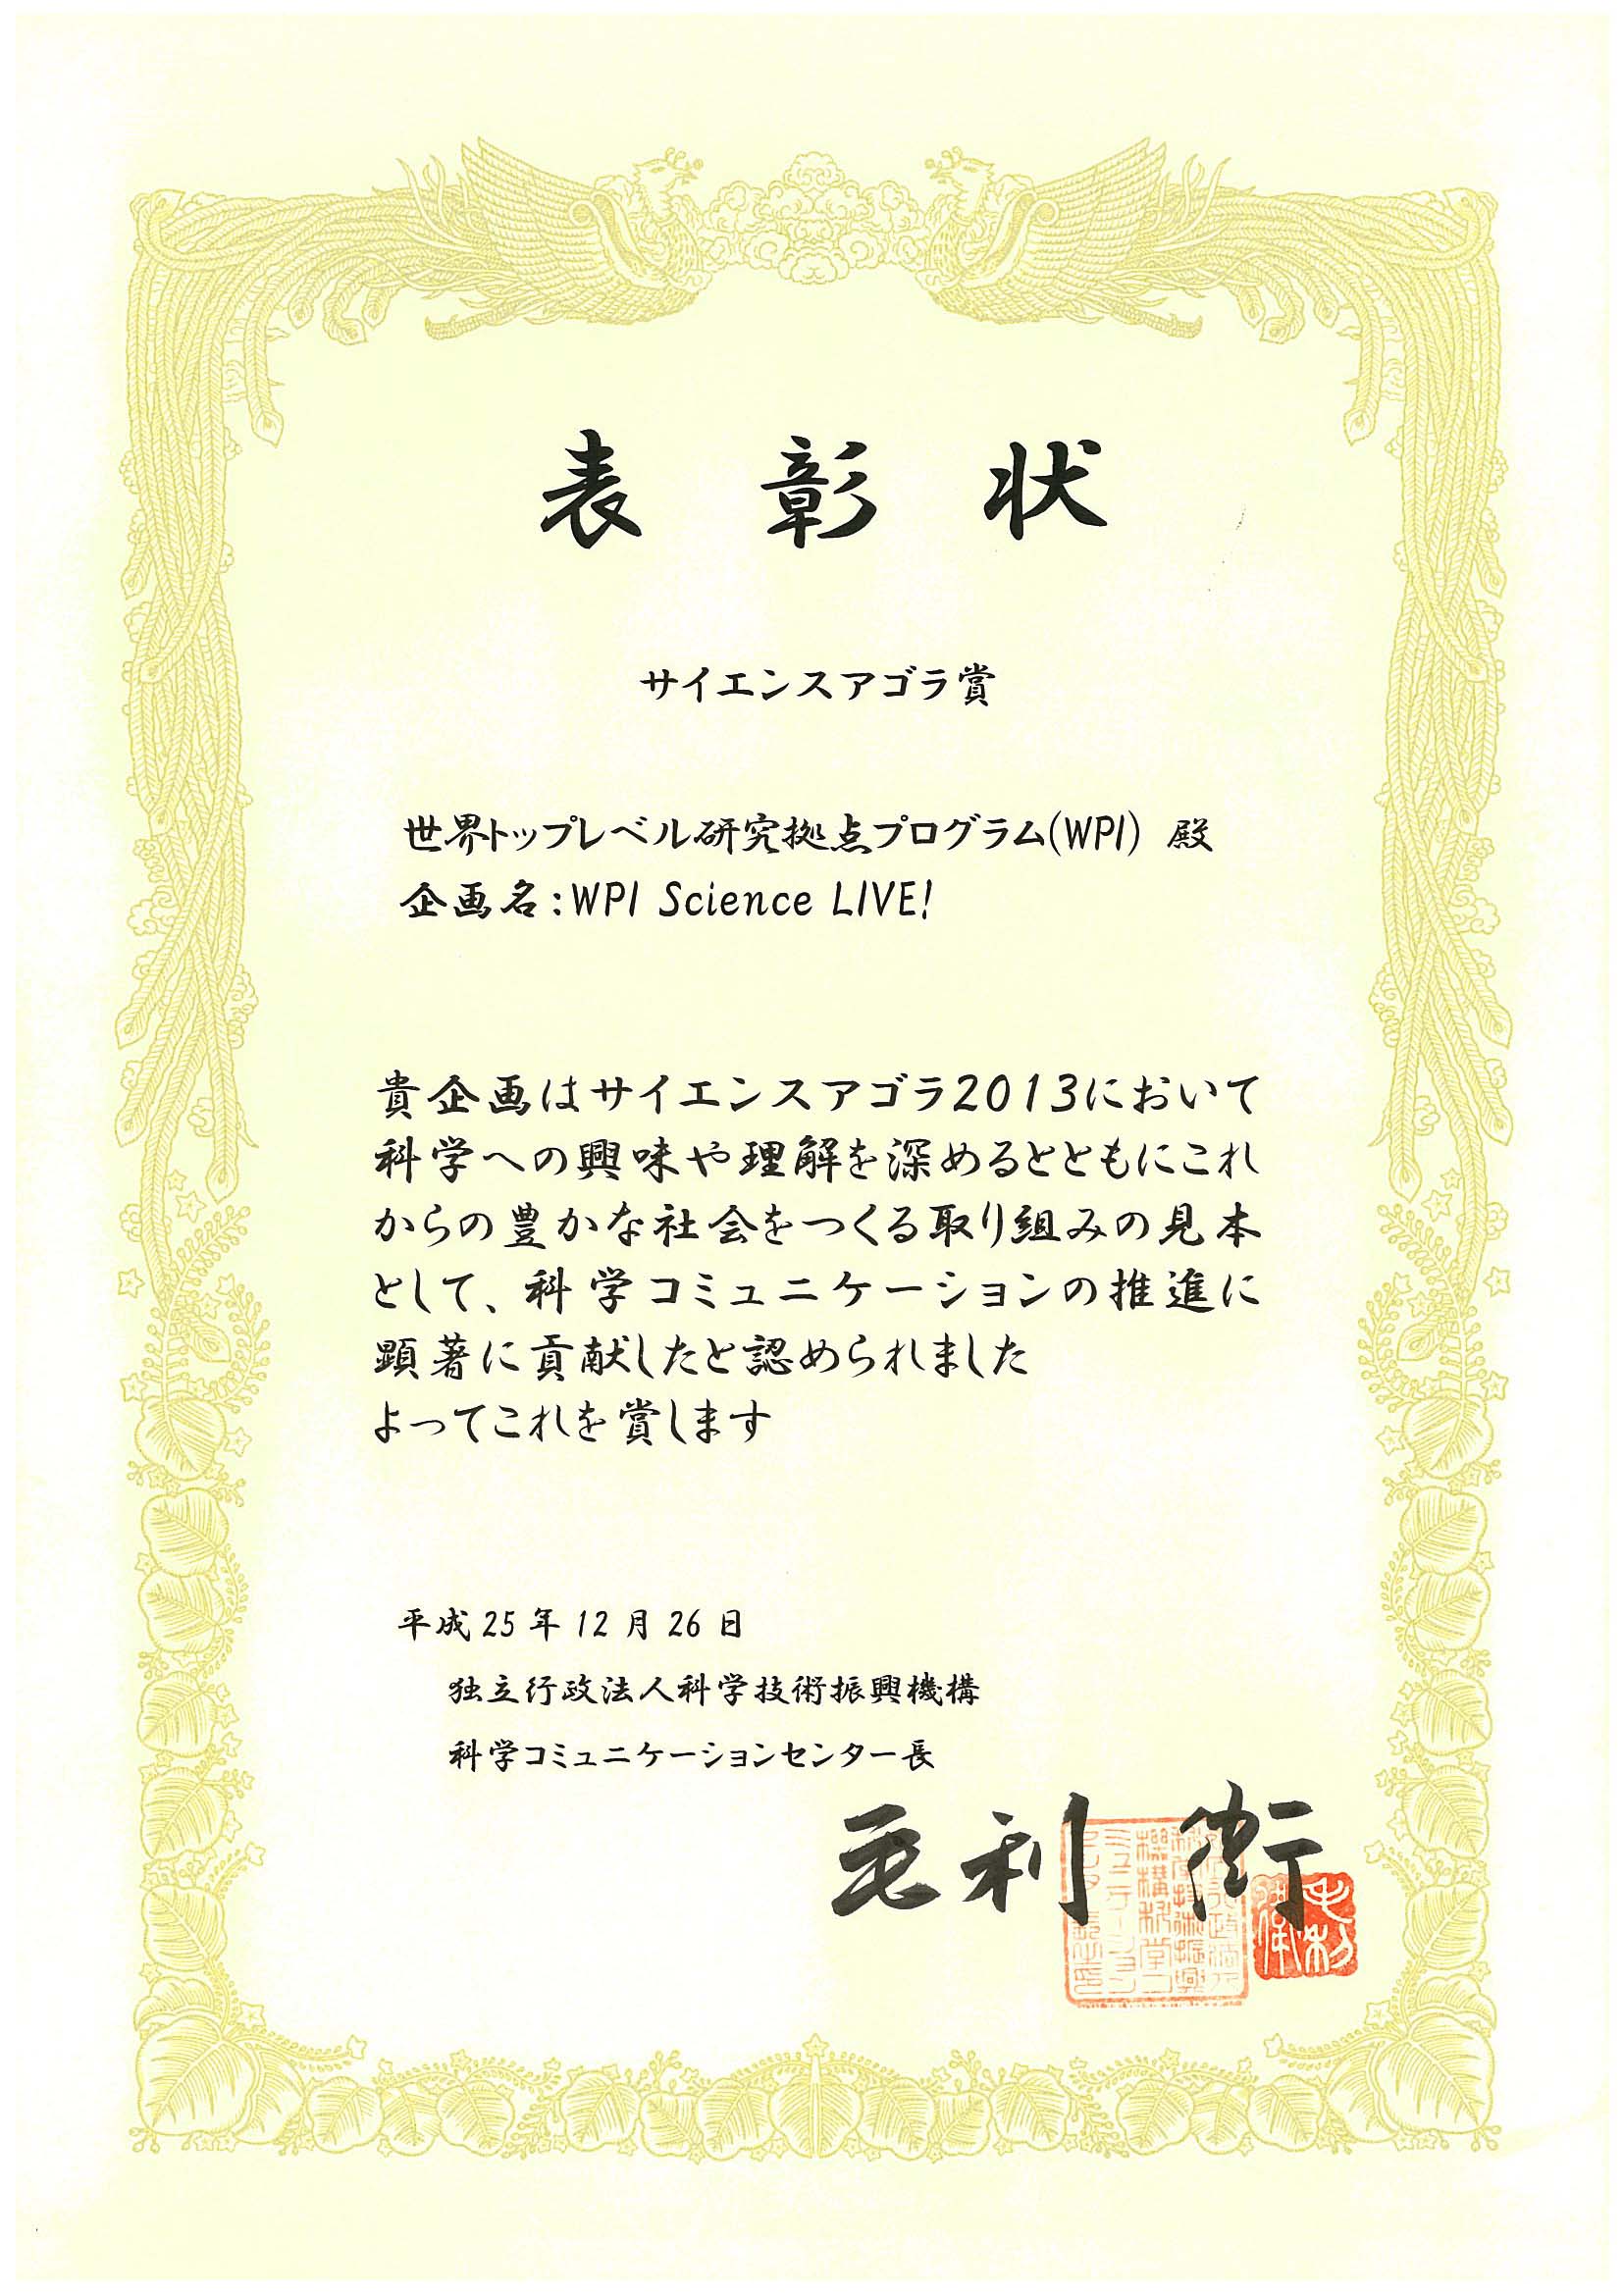 表彰状
サイエンスアゴラ賞
世界トップレベル研究拠点プログラム(WPI) 殿
企画名:WPI Science LIVE!
貴企画はサイエンスアゴラ2013において
科学への興味や理解を深めるとともにこれ
からの豊かな社会をつくる取り組みの見本
として、科学コミュニケーションの推進に
顕著に貢献したと認められました
よってこれを賞します
平成25年12月26日
独立行政法人科学技術振興機構
科学コミュニケーションセンター長
毛利 衛
毛利
衛